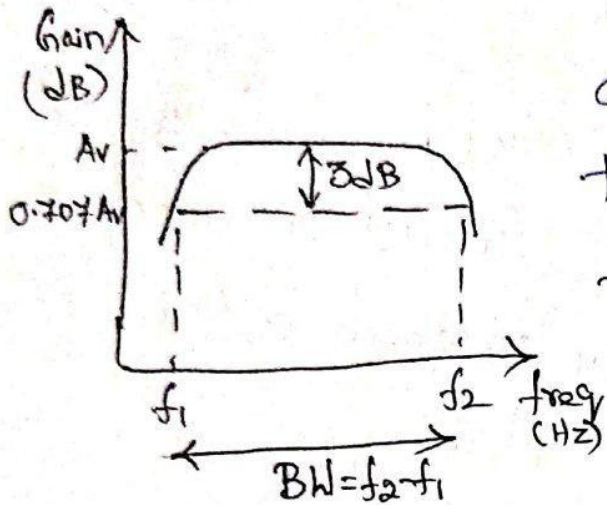 Gain
(dB)
Av
3dB
0.707Av
f1
f2
freq
(Hz)
BW=f2-f1